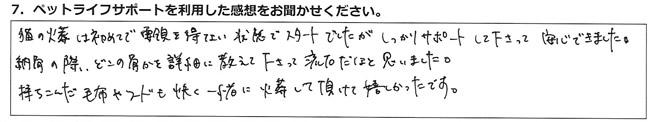 7．ペットライフサポートを利用した感想をお聞かせください。
猫の火葬は初めてで要領を得ない状態でスタートでしたがしっかりサポートして下さって安心できました。
納骨の際、どこの骨かを詳細に教えて下さって流石だなと思いました。
持ちこんだ毛布やフードも快く一緒に火葬して頂けて嬉しかったです。